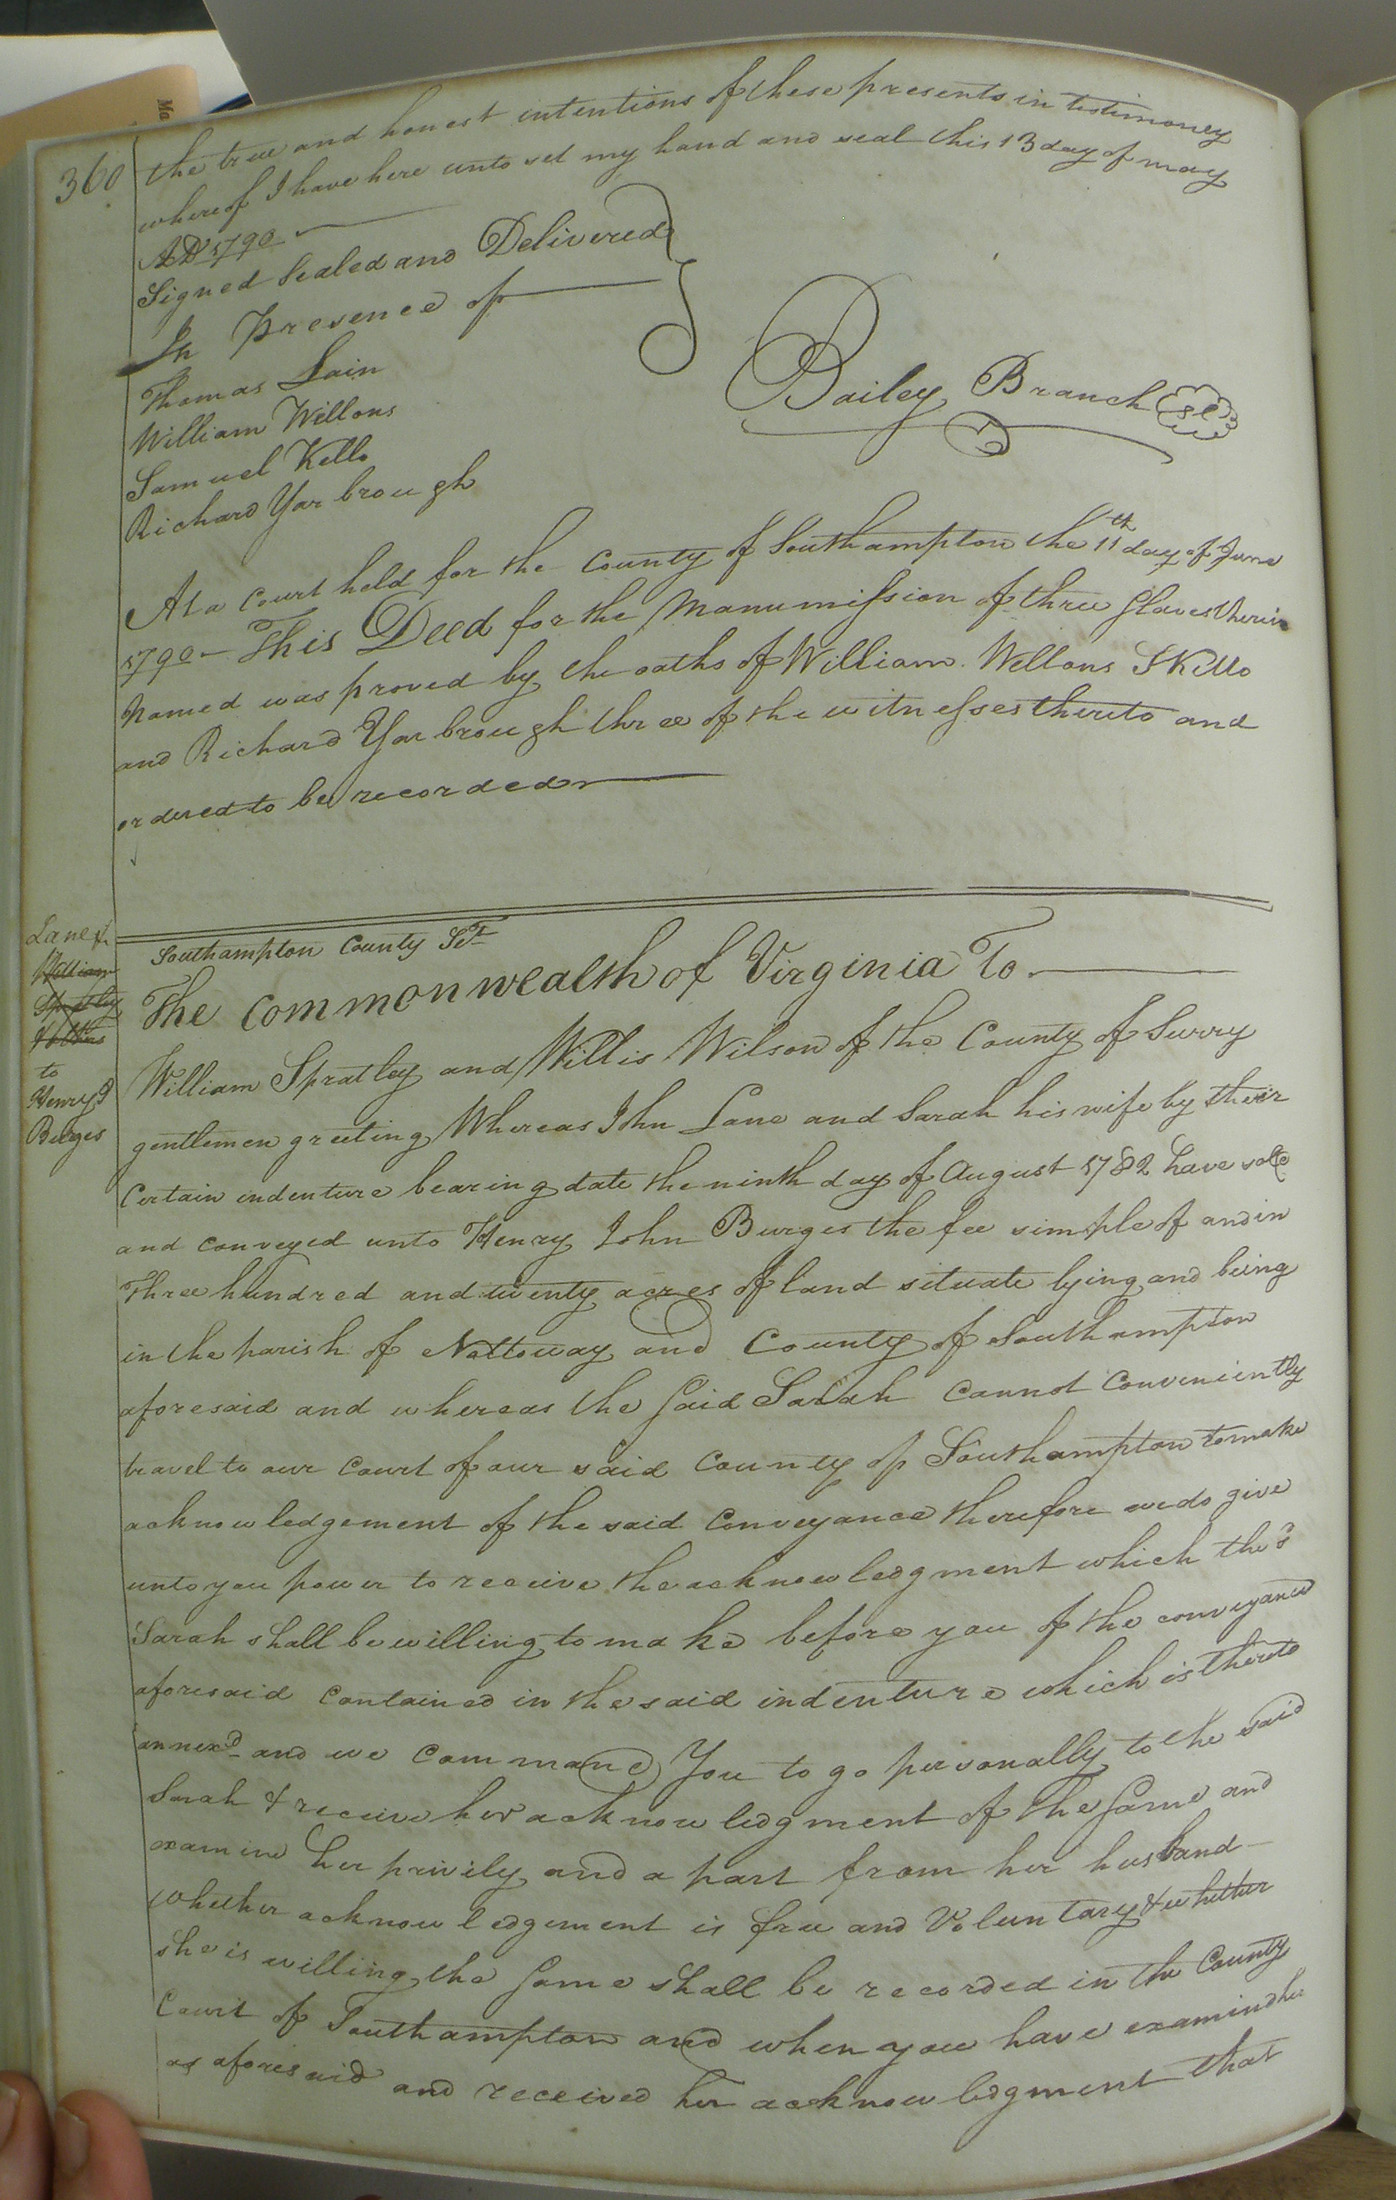 360
the true and honest intentions of these presents in testimoney
whereof I have here unto set my hand and seal this 13 day of may
AD 1790
Signed Sealed and Delivered
In Presence of
Thomas Lain
William Wellons
Samuel Kello
Richard Yarbrough
Bailey Branch Sl
At a Court held for the County of Southampton the 11th day of June
1790 — This Deed for the Manumission of three Slaves therein
Named was proved by the oaths of William Wellons S Kello
and Richard Yarbrough three of the witnesses thereto and
ordered to be recorded
Lane &
William
Spratley
to
Henry J
Burges
Southampton County Sct
The Commonwealth of Virginia To
William Spratley and Willis Wilson of the County of Surry
gentlemen greeting Whereas John Lane and Sarah his wife by their
Certain indenture bearing date the ninth day of August 1782 have sold
and conveyed unto Henry John Burges the fee simple of and in
Three hundred and twenty acres of land situate lying and being
in the parish of Nottoway and County of Southampton
aforesaid and whereas the Said Sarah Cannot Conveniently
travel to our Court of our said County of Southampton to make
acknowledgement of the said Conveyance therefore we do give
unto you power to receive the acknowledgment which the sd
Sarah shall be willing to make before you of the conveyance
aforesaid contained in the said indenture which is thereto
annexd and we Command You to go personally to the said
Sarah & receive her acknowledgment of the Same and
examine her privily and a part from her husband
whether acknowledgement is free and Voluntary & whether
she is willing the Same shall be recorded in the County
Court of Southampton and when you have examind her
as aforesaid and received her acknowledgment that